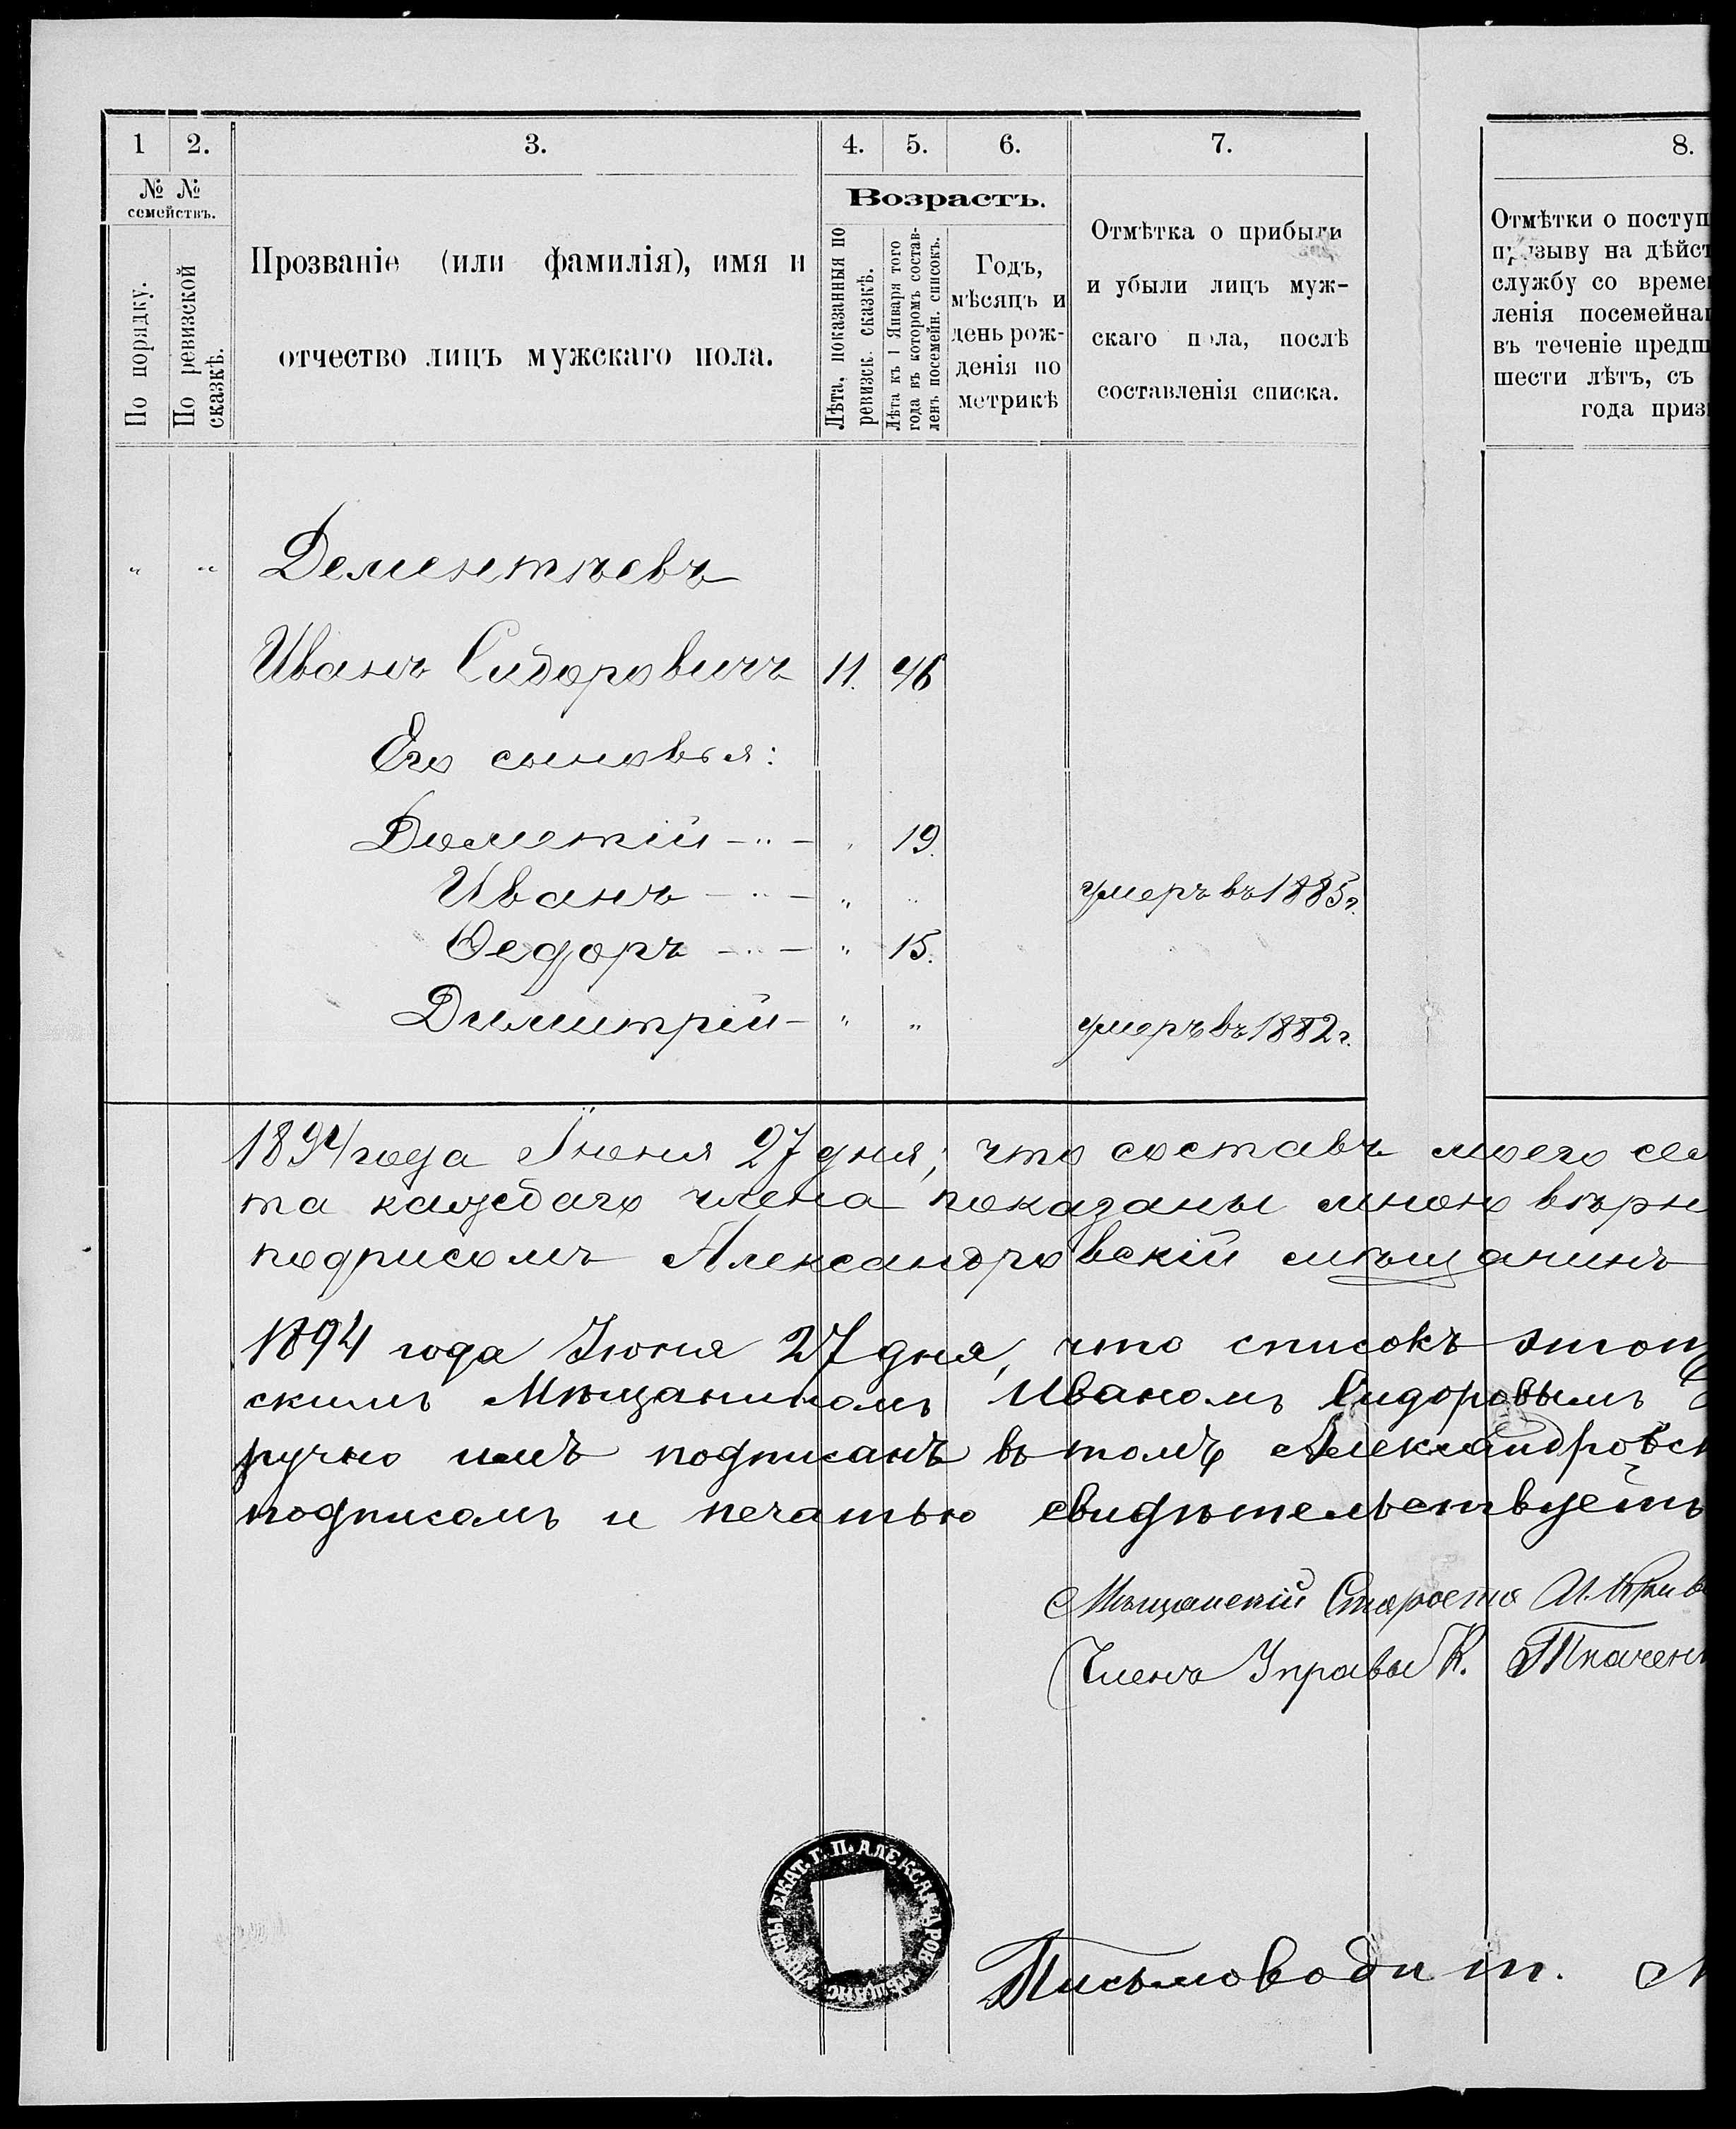 1 2. 3. 4. 5. 6. 7. 8.
№ № семействъ.
По порядку.
По ревизской сказкѣ.
Прозваніе (или фамилія), имя и
отчество лицъ мужскаго пола.
Возрастъ.
Лѣта, показанныя по
ревизск. сказкѣ.
Лѣта къ 1 Января того
года въ которомъ состав-
ленъ посемейн. списокъ.
Годъ,
мѣсяцъ и
день рож-
денія по
метрикѣ
Отмѣтка о прибыли
и убыли лицъ муж-
скаго пола, послѣ
составленія списка.
Отмѣтки о поступ
призыву на дѣйст
службу со време
ленія посемейна
въ теченіе предш
шести лѣтъ, съ
года приз
„ „ Дементьевъ
Иванъ Сидоровичъ 11. 46
Его сыновья:
Дометій - „ - „ 19.
Иванъ - „ - „ „ умеръ въ 1885 г.
Ѳедоръ - „ - „ 15.
Димитрій - „ „ умеръ въ 1882 г.
1894 года Іюня 27 дня, что составъ моего сем
та каждаго члена показаны мною вѣрн
подписомъ Александровскій мѣщанинъ
1894 года Іюня 27 дня, что списокъ этотъ
скимъ Мѣщаниномъ Иваномъ Сидоровымъ
ручно имъ подписанъ въ томъ Александровск
подписомъ и печатью свидѣтельствуетъ
Мѣщанскій Староста И. Крив
Членъ Управы К. Ткачен
УПРАВЫ ЕКАТ. Г. П. АЛЕКСАНДРОВ. МѢЩАНС
Письмоводит.